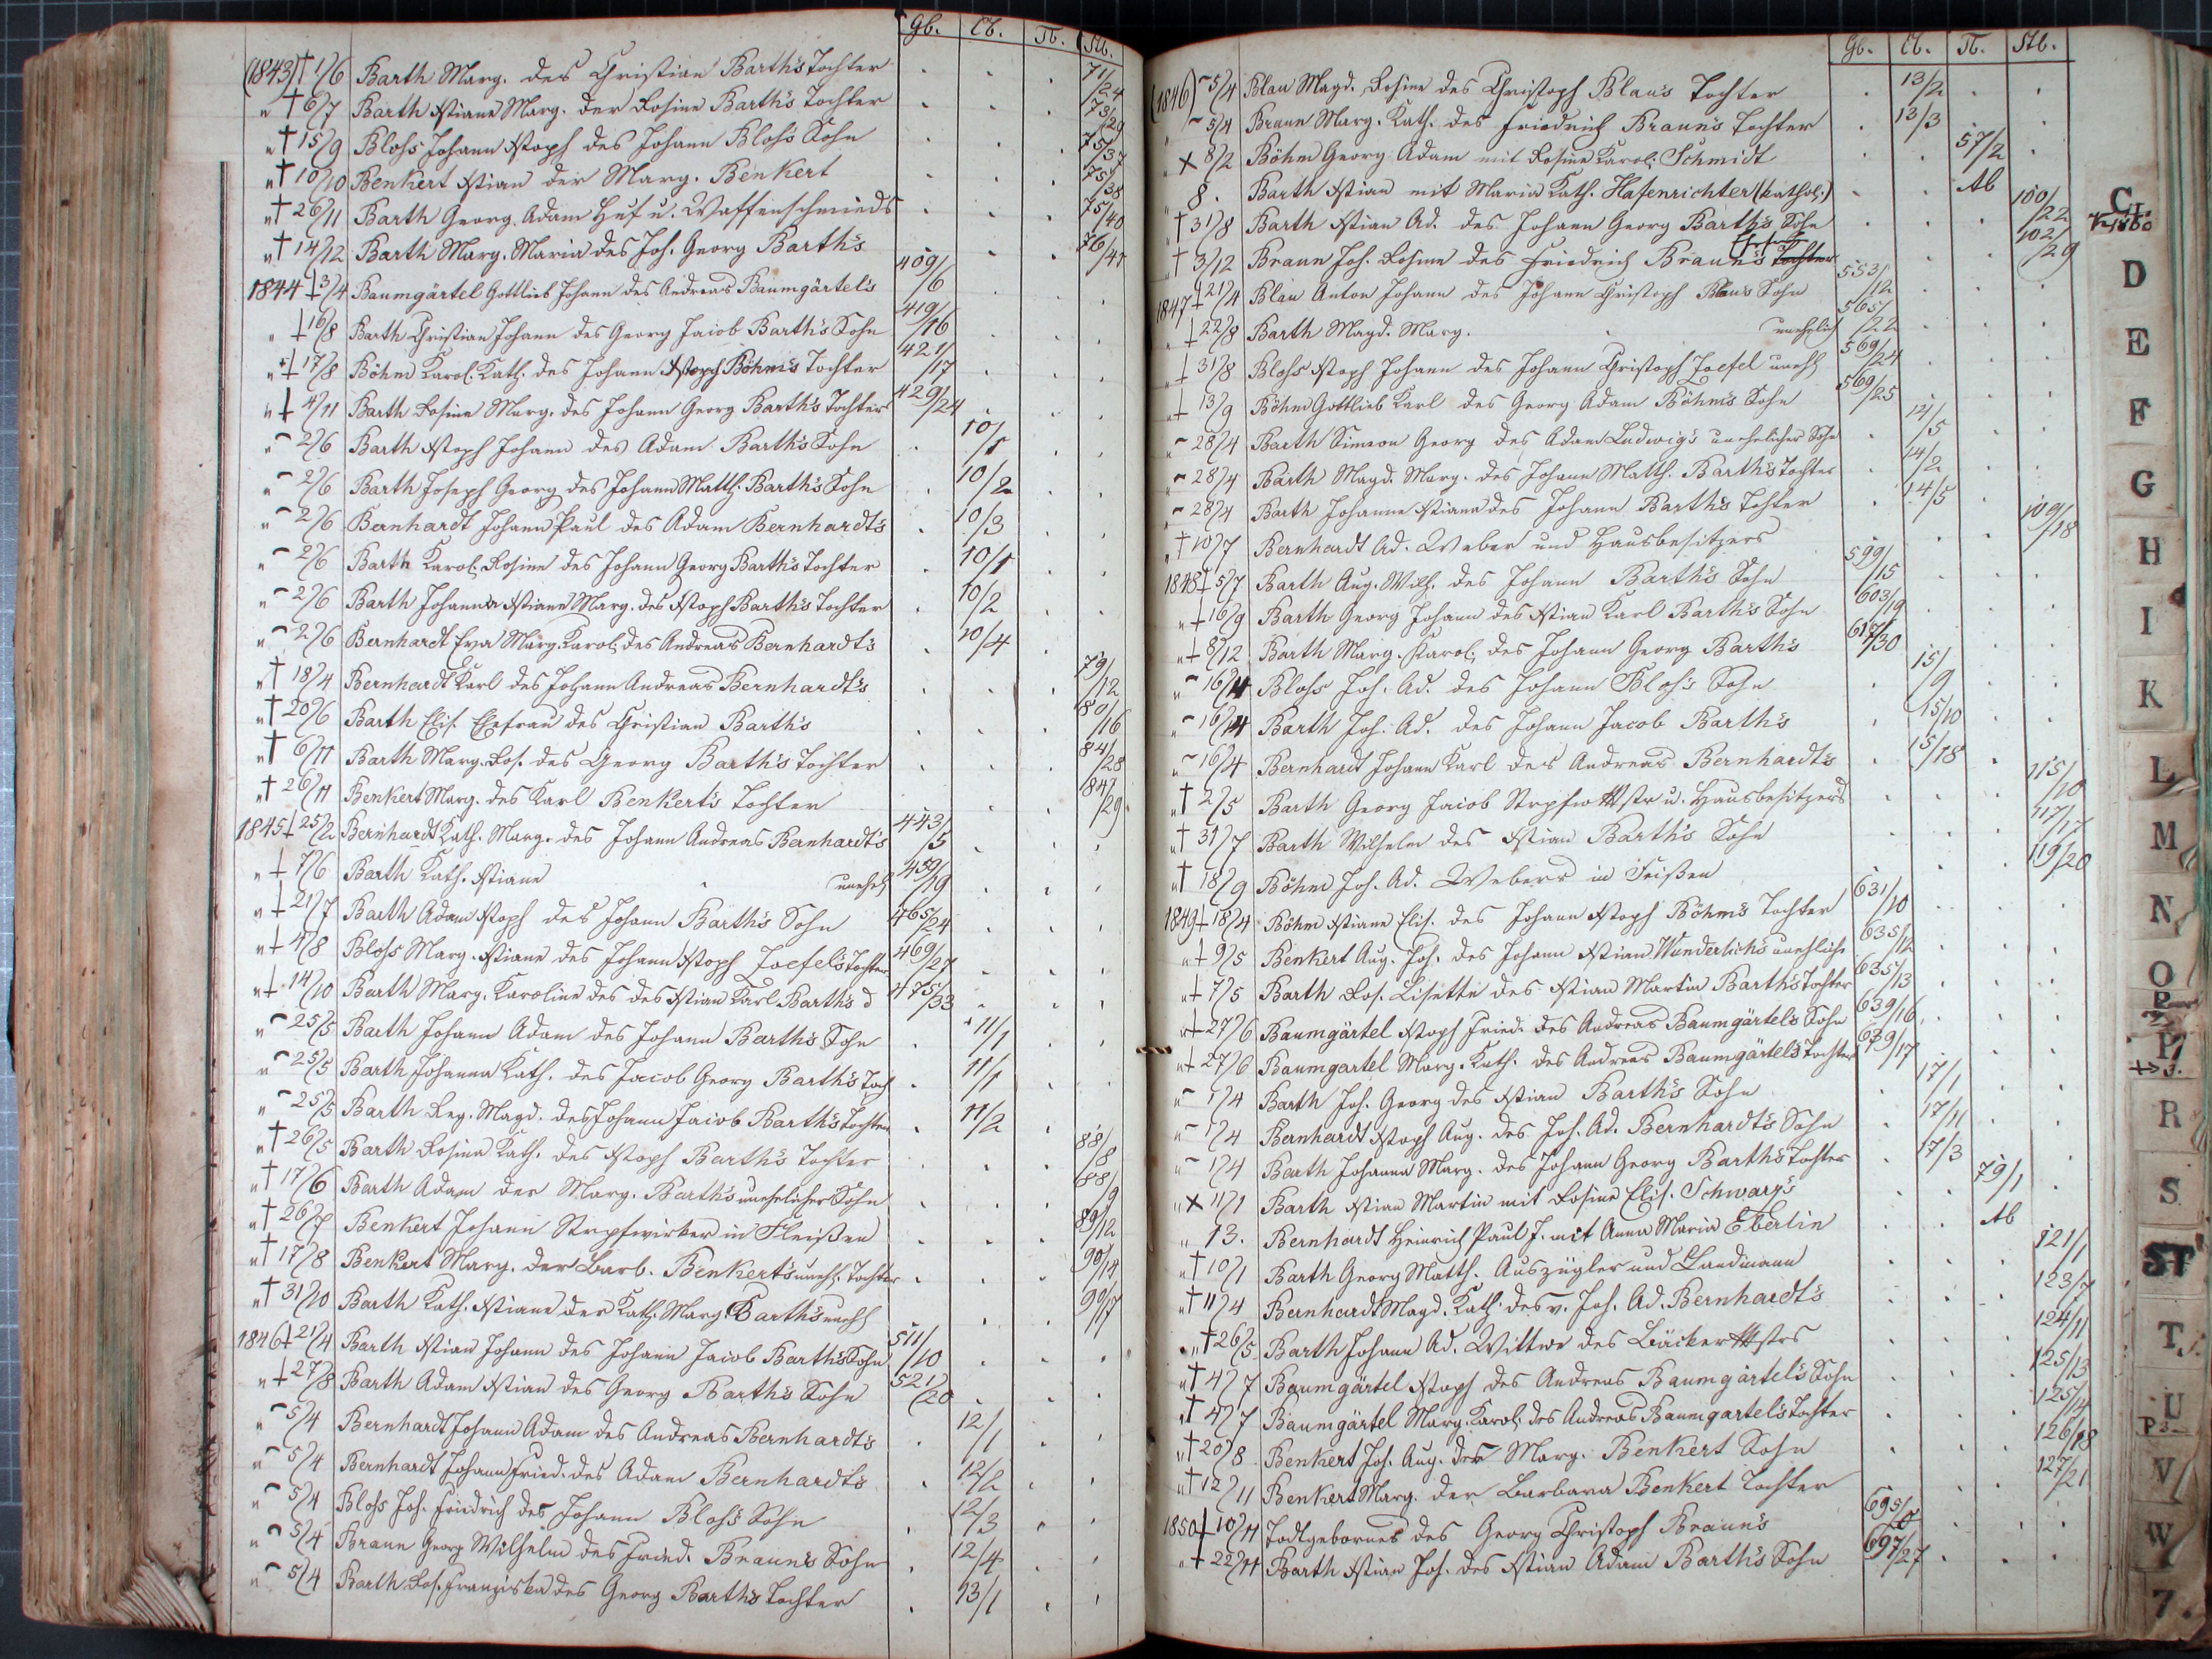 Gb. Cb. Tb. Stb.
(1843) † 1/6 Barth Marg. des Christian Barth's Tochter . . . 71/24
" † 6/7 Barth Xstiane Marg. der Rosine Barth's Tochter . . . 73/29
" † 15/9 Bloss Johann Xstoph des Johann Bloss's Sohn . . . 75/37
" † 10/10 Benkert Xstian der Marg. Benkert . . . 75/38
" † 26/11 Barth Georg. Adam Huf u. Waffenschmieds . . . 75/40
" † 14/12 Barth Marg. Maria des Joh. Georg Barth's . . . 76/41
1844 + 3/4 Baumgärtel Gottlieb Johann des Andreas Baumgärtel's 409/6 . . .
" + 16/8 Barth Christian Johann des Georg Jacob Barth's Sohn 419/16 . . .
" + 17/8 Böhm Karol. Kath. des Johann Xstoph Böhm's Tochter 421/17 . . .
" + 4/11 Barth Rosine Marg. des Johann Georg Barth's Tochter 429/24 . . .
" ~ 2/6 Barth Xstoph Johann des Adam Barth's Sohn . 10/1 . .
" ~ 2/6 Barth Joseph Georg des Johann Matth. Barth's Sohn . 10/2 . .
" ~ 2/6 Bernhardt Johann Paul des Adam Bernhardt's . 10/3 . .
" ~ 2/6 Barth Karol. Rosine des Johann Georg Barth's Tochter . 10/1 . .
" ~ 2/6 Barth Johanna Xstiane Marg. des Xstoph Barth's Tochter . 10/2 . .
" ~ 2/6 Bernhardt Eva Marg. Karol. des Andreas Bernhardt's . 10/4 .
" † 18/4 Bernhardt Karl des Johann Andreas Bernhardt's . . . 79/12
" † 20/6 Barth Elis. Ehefrau des Christian Barth's . . . 80/16
" † 6/11 Barth Marg. Ros. des Georg Barth's Tochter . . . 84/28
" † 26/11 Benkert Marg. des Karl Benkert's Tochter . . 84/29
1845 + 25/2 Bernhardt Kath. Marg. des Johann Andreas Bernhardt's 443/5 . . .
" + 7/6 Barth Kath. Xstiane unehel 459/19 . . .
" + 21/7 Barth Adam Xstoph des Johann Barth's Sohn 465/24 . . .
" + 4/8 Bloss Marg. Xstiane des Johann Xstoph Zoefel's Tochter 469/27 . . .
" + 14/10 Barth Marg. Karoline des des Xstian Karl Barth's d 475/33 . . .
" ~ 25/5 Barth Johann Adam des Johann Barth's Sohn . 11/1 . .
" ~ 25/5 Barth Johanna Kath. des Jacob Georg Barth's Toch . 11/1 . .
" ~ 25/5 Barth Reg. Magd. des Johann Jacob Barth's Tochter . 11/2 .
" † 26/5 Barth Rosina Kath. des Xstoph Barth's Tochter . . . 88/8
" † 17/6 Barth Adam der Marg. Barth's unehelicher Sohn . . . 88/9
" † 26/7 Benkert Johann Strpfwirker in Fleißen . . . 89/12
" † 17/8 Benkert Marg. der Barb. Benkert's unehl. Tochter . . . 90/14
" † 31/10 Barth Kath. Xstiane der Kath. Marg. Barth's unehl . . . 90/17
1846 + 21/4 Barth Xstian Johann des Johann Jacob Barth's Sohn 511/10 . . .
" + 27/8 Barth Adam Xstian des Georg Barth's Sohn 521/20 . . .
" ~ 5/4 Bernhardt Johann Adam des Andreas Bernhardt's . 12/1 . .
" ~ 5/4 Bernhardt Johann Fried. des Adam Bernhardt's . 12/2 . .
" ~ 5/4 Bloss Joh. Friedrich des Johann Bloss's Sohn . 12/3 . .
" ~ 5/4 Braun Georg Wilhelm des Fried. Braun's Sohn . 12/4 . .
" ~ 5/4 Barth Ros. Franziska des Georg Barth's Tochter . 13/1 . .
Gb. Cb. Tb. Stb.
(1846) ~ 5/4 Blau Magd. Rosine des Christoph Blau's Tochter . 13/2 . .
~ 5/4 Braun Marg. Kath. des Friedrich Braun's Tochter . 13/3 .
" X 8/2 Böhm Georg Adam mit Rosine Karol. Schmidt . . 57/2 .
" 8. Barth Xstian mit Maria Kath. Hasenrichter (kathol.) . . Ab
" † 31/8 Barth Xstian Ad. des Johann Georg Barth's Sohn . . . 100/22
" † 3/12 Braun Joh. Rosine des Friedrich Braun's Tochter . . 102/29
1847 + 21/4 Blau Anton Johann des Johann Christoph Blau's Sohn 553/12 . . .
" + 22/8 Barth Magd. Marg. unehelich 565/22 . . .
" + 31/8 Bloss Xstoph Johann des Johann Christoph Zoefel unehl 569/24 . . .
" + 13/9 Böhm Gottlieb Karl des Georg Adam Böhm's Sohn 569/25 . . .
" ~ 28/4 Barth Simeon Georg des Adam Ludwig's unehelicher Sohn . 14/5 . .
" ~ 28/4 Barth Magd. Marg. des Johann Matth. Barth's Tochter . 14/2 . .
" ~ 28/4 Barth Johanne Xstiana des Johann Barth's Tochter . 14/5 .
" † 10/7 Bernhardt Ad. Weber und Hausbesitzers . . . 109/18
1848 + 5/7 Barth Aug. Wilh. des Johann Barth's Sohn 599/15 . . .
" + 16/9 Barth Georg Johann des Xstian Karl Barth's Sohn 603/19 . . .
" + 8/12 Barth Marg. Karol. des Johann Georg Barth's 617/30 . . .
" ~ 16/4 Bloss Joh. Ad. des Johann Bloss's Sohn . 15/9 . .
" ~ 16/4 Barth Joh. Ad. des Johann Jacob Barth's . 15/10 . .
" ~ 16/4 Bernhardt Johann Karl des Andreas Bernhardt's . 15/18 .
" † 2/5 Barth Georg Jacob Strpfwmstr u. Hausbesitzers . . . 115/10
" † 31/7 Barth Wilhelm des Xstian Barth's Sohn . . . 117/17
" † 18/9 Böhm Joh. Ad. Webers in Fleißen . . 119/20
1849 + 18/4 Böhm Xstiane Elis. des Johann Xstoph Böhm's Tochter 631/10 . . .
" + 9/5 Benkert Aug. Joh. des Johann Xstian Wunderlich's uneheliche 635/12 . . .
" + 7/5 Barth Ros. Lisette des Xstian Martin Barth's Tochter 635/13 . . .
" + 27/6 Baumgärtel Xstoph Fried. des Andreas Baumgärtel's Sohn 639/16 . . .
" + 27/6 Baumgartel Marg. Kath. des Andreas Baumgärtel's Tochter 639/17 . . .
" ~ 1/4 Barth Joh. Georg des Xstian Barth's Sohn . 17/1 . .
" ~ 1/4 Bernhardt Xstoph Aug. des Joh. Ad. Bernhardt's Sohn . 17/11 . .
" ~ 1/4 Barth Johanna Marg. des Johann Georg Barth's Tochter . 17/3 .
" X 11/1 Barth Xstian Martin mit Rosine Elis. Schwarz's . . 79/1 .
" 13. Bernhardt Heinrich Paul J. mit Anna Maria Eberlin . . Ab
" † 10/1 Barth Georg Matth. Auszügler und Landmann . . . 121/1
" † 11/4 Bernhardt Magd. Kath. des v. Joh. Ad. Bernhardt's . . . 123/7
" † 26/5 Barth Johann Ad. Wittwe des Bäckermstrs . . . 124/11
" † 4/7 Baumgärtel Xstoph des Andreas Baumgärtel's Sohn . . . 125/13
" † 4/7 Baumgärtel Marg. Karol. des Andreas Baumgartel's Tochter . . . 125/14
" † 20/8 Benkert Joh. Aug. der Marg. Benkert Sohn . . . 126/18
" † 12/11 Benkert Marg. der Barbara Benkert Tochter . . . 127/21
1850 + 10/11 Todtgebornes des Georg Christoph Braun's 695/ . . .
" + 22/11 Barth Xstian Joh. des Xstian Adam Barth's Sohn 697/27 . . .
C
D
E
F
G
H
I
K
L
M
N
O
P
R
S
ST
T
U
V
W
7.